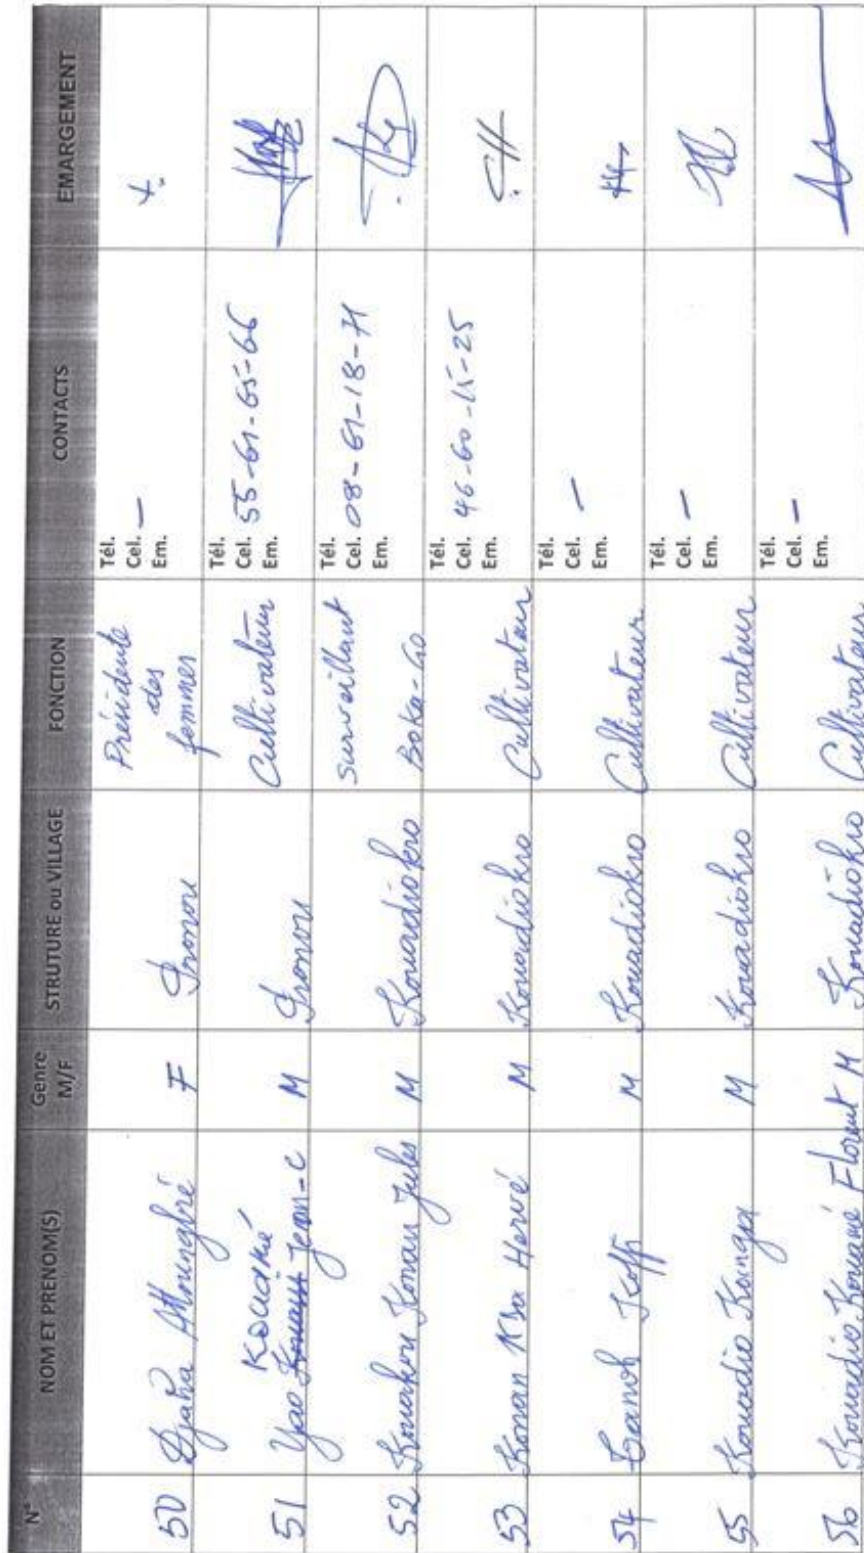 N° NOM ET PRENOM(S) Genre M/F STRUTURE ou VILLAGE FONCTION CONTACTS EMARGEMENT
50 Djaha Attoungbré F Présidente des femmes Tél. Cel. — Em.
51 Yao Kouamé Jean-C M Cultivateur Tél. Cel. 55-61-65-66 Em.
52 Kouakou Konan Jules M Kouadiokro Surveillant Boka-Go Tél. Cel. 08-61-18-71 Em.
53 Konan Kha Hervé M Kouadiokro Cultivateur Tél. Cel. 46-60-15-25 Em.
54 Koffi M Kouadiokro Cultivateur Tél. Cel. — Em.
55 Kouadio Kanga M Kouadiokro Cultivateur Tél. Cel. — Em.
56 Kouadio Kouamé Florent M Kouadiokro Cultivateur Tél. Cel. — Em.